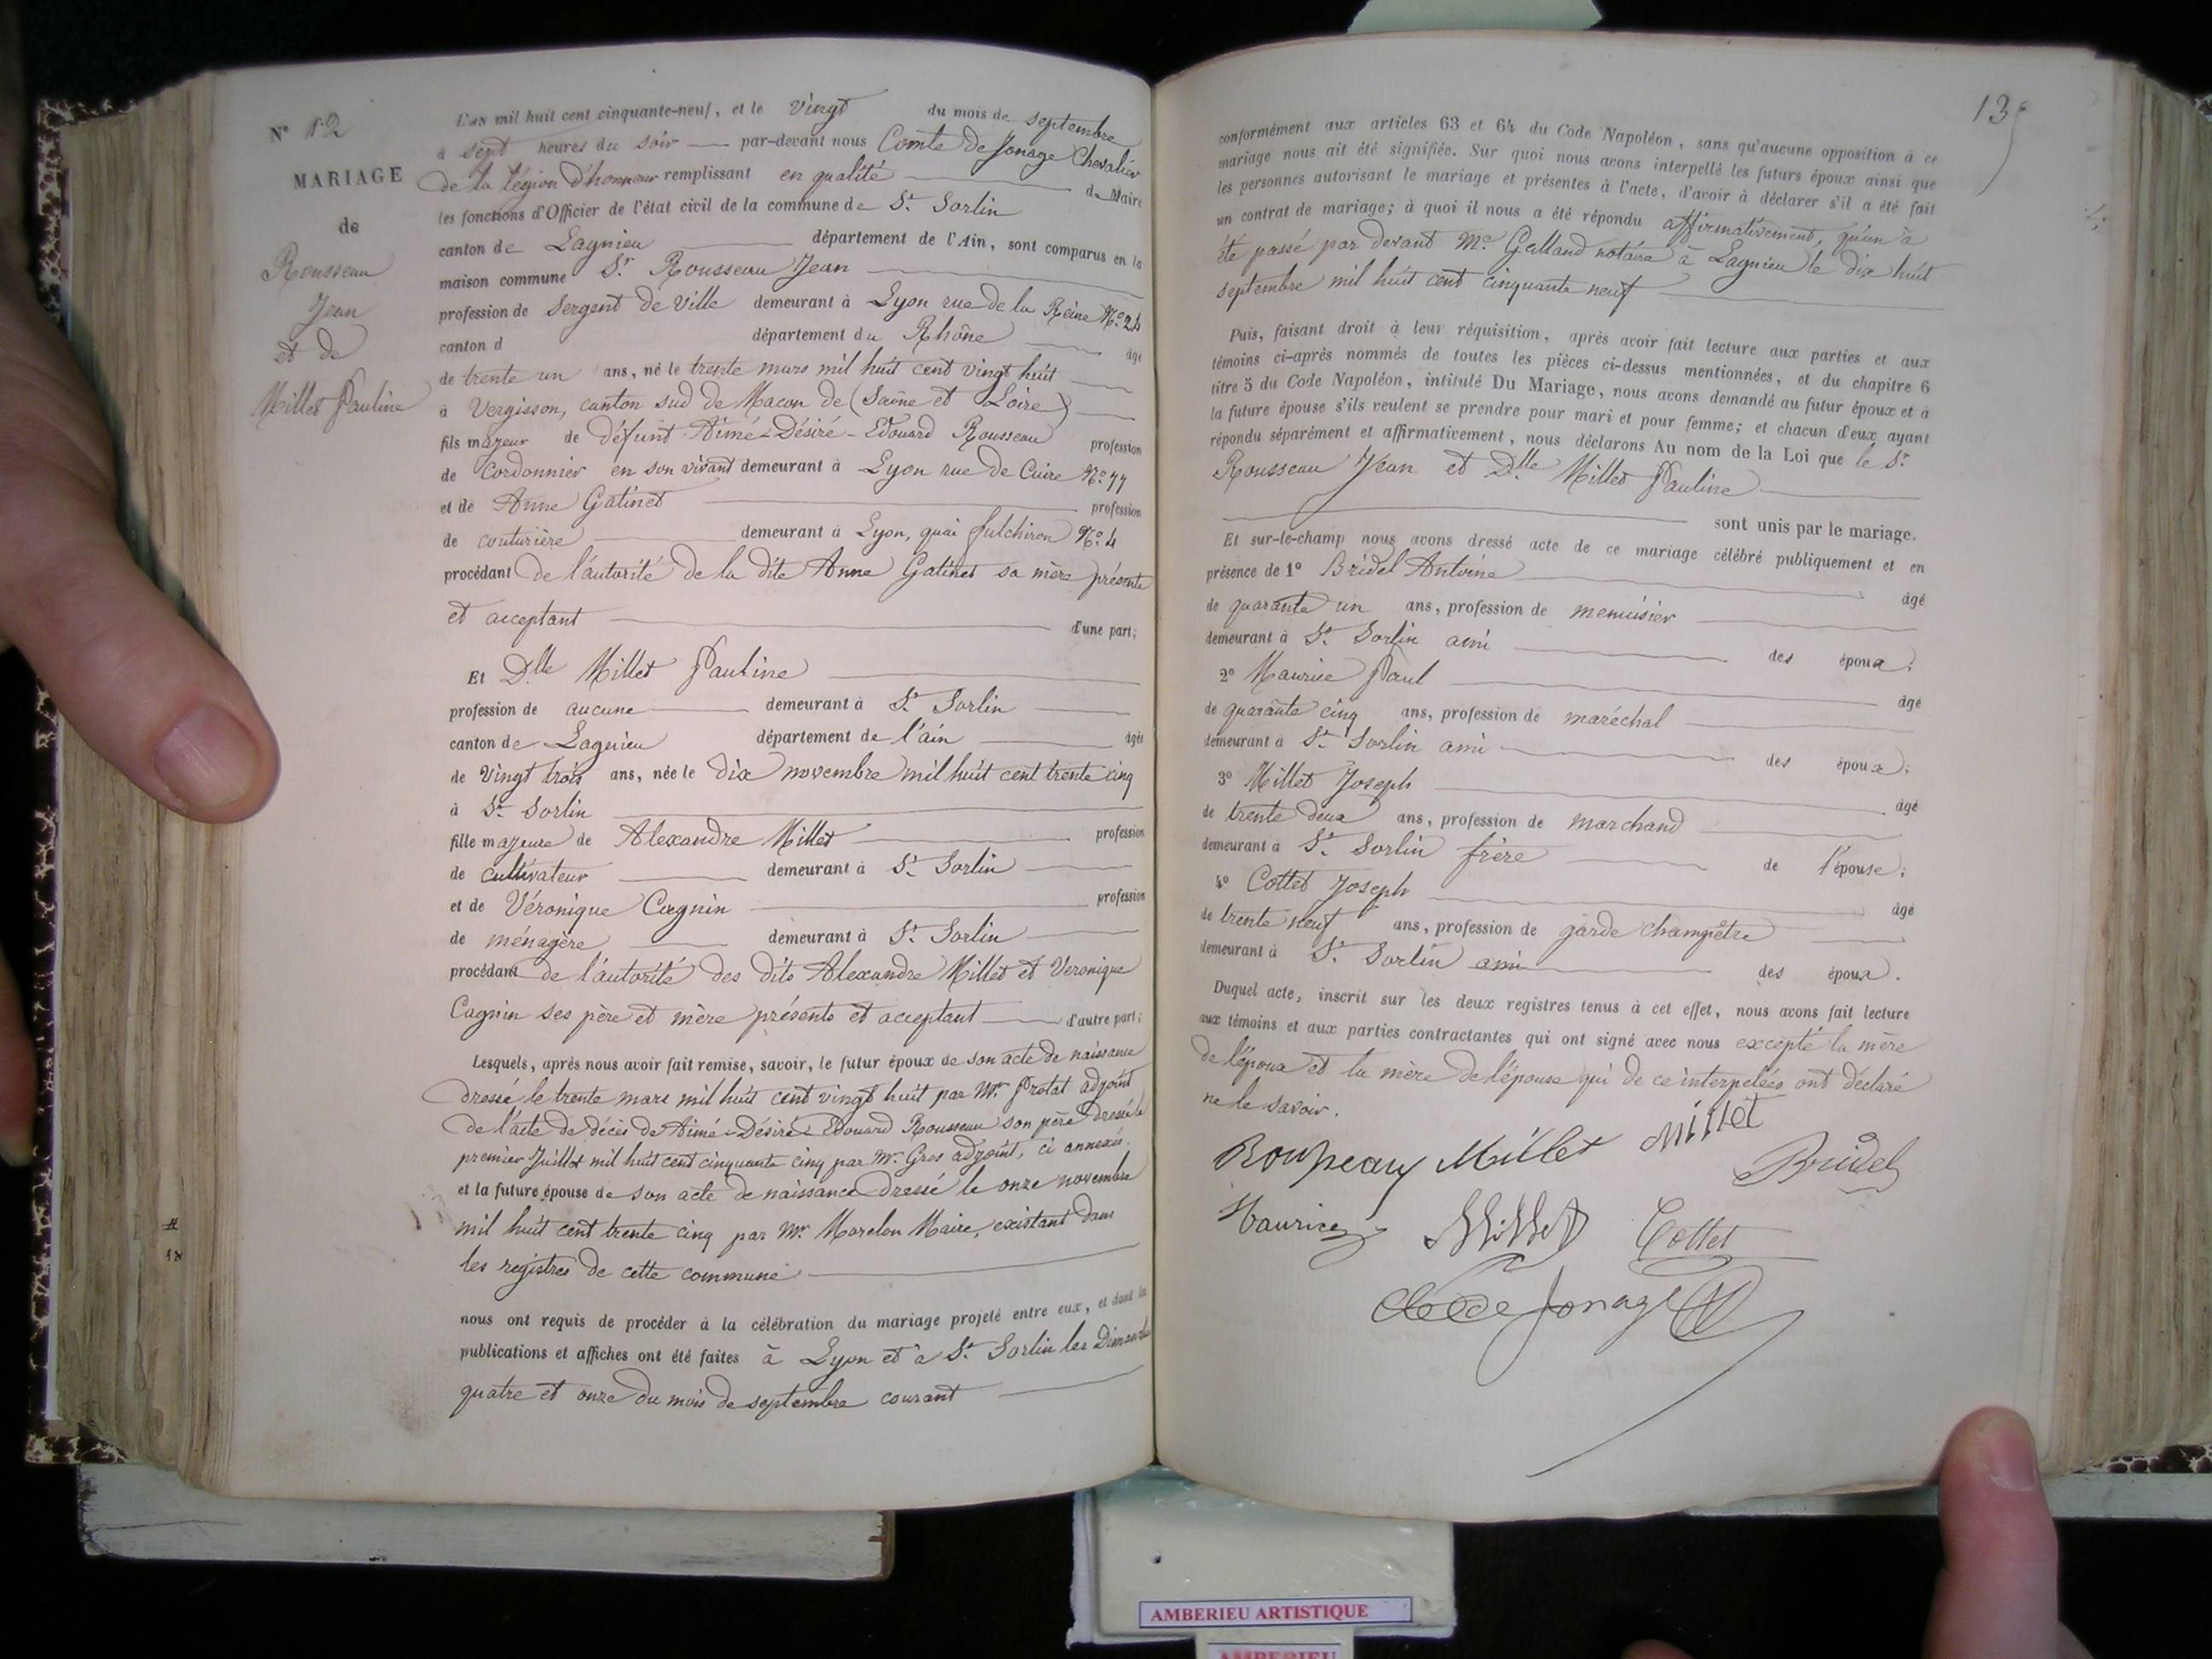 N° 12
MARIAGE
de
Rousseau
Jean
et de
Millet Pauline
L'an mil huit cent cinquante-neuf, et le vingt du mois de septembre
à sept heures du soir par-devant nous Comte de Jonage Chevalier
de la légion d'honneur remplissant en qualité de Maire
les fonctions d'Officier de l'état civil de la commune de St. Sorlin
canton de Lagnieu département de l'Ain, sont comparus en la
maison commune Sr. Rousseau Jean
profession de Sergent de ville demeurant à Lyon rue de la Reine No. 24
canton d département du Rhône âgé
de trente un ans, né le trente mars mil huit cent vingt huit
à Vergisson, canton sud de Macon de (Saône et Loire)
fils majeur de défunt Aimé-Désiré-Edouard Rousseau profession
de Cordonnier en son vivant demeurant à Lyon rue de Cuire No. 77
et de Anne Gatinet profession
de couturière demeurant à Lyon, quai fulchiron No. 4
procédant de l'autorité de la dite Anne Gatinet sa mère présente
et acceptant d'une part;
Et Dlle Millet Pauline
profession de aucune demeurant à St. Sorlin
canton de Lagnieu département de l'ain âgée
de vingt trois ans, née le dix novembre mil huit cent trente cinq
à St. Sorlin
fille majeure de Alexandre Millet profession
de cultivateur demeurant à St. Sorlin
et de Véronique Cagnin profession
de ménagère demeurant à St. Sorlin
procédant de l'autorité des dits Alexandre Millet et Veronique
Cagnin ses père et mère présents et acceptant d'autre part;
Lesquels, après nous avoir fait remise, savoir, le futur époux de son acte de naissance
dressé le trente mars mil huit cent vingt huit par Mr. Protat adjoint
de l'acte de décès de Aimé-Désiré-Edouard Rousseau son père dressé le
premier Juillet mil huit cent cinquante cinq par Mr. Gros adjoint, ci annexés.
et la future épouse de son acte de naissance dressé le onze novembre
mil huit cent trente cinq par Mr. Marelon Maire, existant dans
les registres de cette commune
nous ont requis de procéder à la célébration du mariage projeté entre eux, et dont les
publications et affiches ont été faites à Lyon et à St. Sorlin les Dimanches
quatre et onze du mois de septembre courant
conformément aux articles 63 et 64 du Code Napoléon, sans qu'aucune opposition à ce
mariage nous ait été signifiée. Sur quoi nous avons interpellé les futurs époux ainsi que
les personnes autorisant le mariage et présentes à l'acte, d'avoir à déclarer s'il a été fait
un contrat de mariage; à quoi il nous a été répondu affirmativement, qu'un à
été passé par devant Me. Galland notaire à Lagnieu le dix huit
septembre mil huit cent cinquante neuf
Puis, faisant droit à leur réquisition, après avoir fait lecture aux parties et aux
témoins ci-après nommés de toutes les pièces ci-dessus mentionnées, et du chapitre 6
titre 5 du Code Napoléon, intitulé Du Mariage, nous avons demandé au futur époux et à
la future épouse s'ils veulent se prendre pour mari et pour femme; et chacun d'eux ayant
répondu séparément et affirmativement, nous déclarons Au nom de la Loi que le Sr.
Rousseau Jean et Dlle Millet Pauline
sont unis par le mariage.
Et sur-le-champ nous avons dressé acte de ce mariage célébré publiquement et en
présence de 1° Bridel Antoine âgé
de quarante un ans, profession de menuisier
demeurant à St. Sorlin ami des époux;
2° Maurice Paul âgé
de quarante cinq ans, profession de maréchal
demeurant à St. Sorlin ami des époux;
3° Millet Joseph âgé
de trente deux ans, profession de marchand
demeurant à St. Sorlin frère de l'épouse;
4° Cottet Joseph âgé
de trente neuf ans, profession de garde champêtre
demeurant à St. Sorlin ami des époux.
Duquel acte, inscrit sur les deux registres tenus à cet effet, nous avons fait lecture
aux témoins et aux parties contractantes qui ont signé avec nous excepté la mère
de l'époux et la mère de l'épouse qui de ce interpelées ont déclaré
ne le savoir.
Rousseau Millet Millet
Bridel
Maurice Millet Cottet
de Jonage
AMBERIEU ARTISTIQUE
AMBERIEU